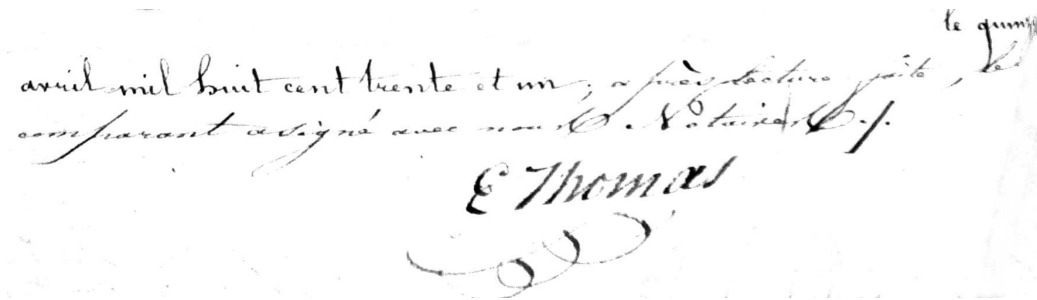 le quinze
avril mil huit cent trente et un ; après lecture faite, le
comparant a signé avec nous Notaires ./.
E Thomas